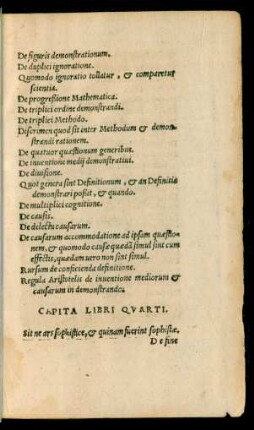 De figuris demonstrationum.
De duplici ignoratione.
Quomodo ignoratio tollatur, & comparetur
scientia.
De progressione Mathematica.
De triplici ordine demonstrandi.
De triplici Methodo.
Discrimen quod sit inter Methodum & demon-
strandi rationem.
De quatuor quæstionum generibus.
De inuentione medij demonstratiui.
De diuisione.
Quot genera sint Definitionum, & an Definitio
demonstrari possit, & quando.
De multiplici cognitione.
De causis.
De delectu causarum.
De causarum accommodatione ad ipsam quæstio-
nem, & quomodo causæ quædã simul sint cum
effectis, quædam uero non sint simul.
Rursum de conficienda definitione.
Regula Aristotelis de inuentione mediorum &
causarum in demonstrando.
CAPITA LIBRI QVARTI.
Sit ne ars sophistice, & quinam fuerint sophistæ.
De fine